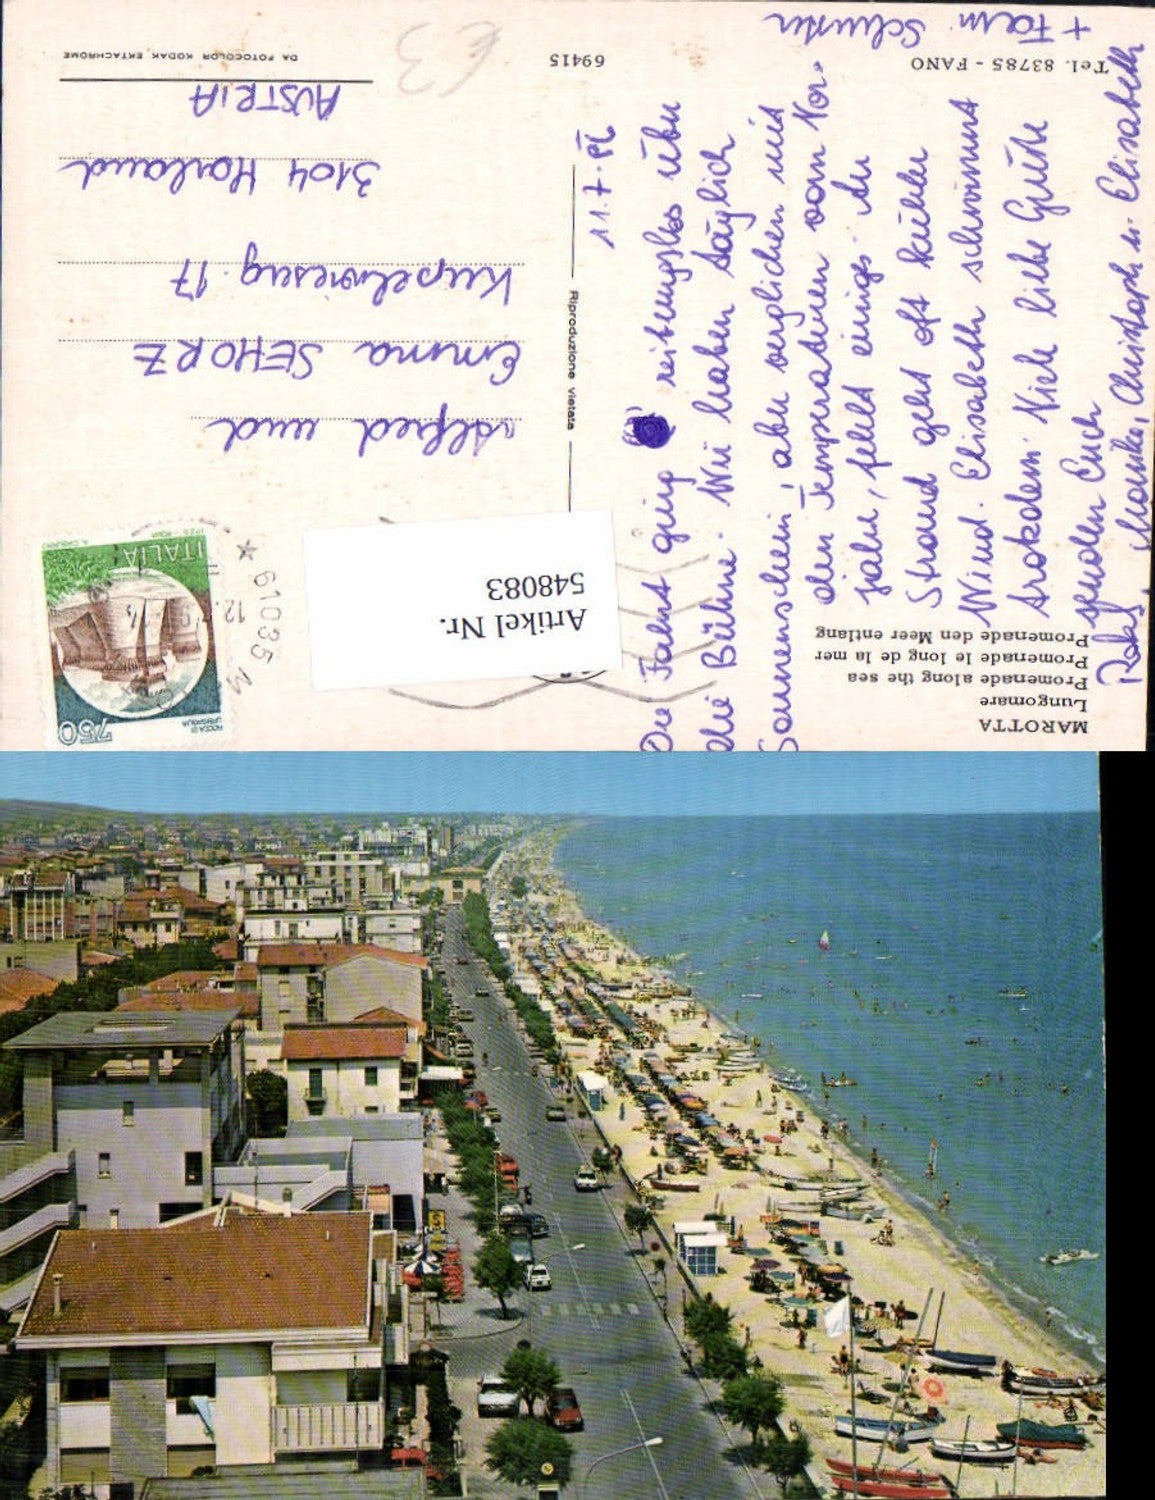 MAROTTA
Lungomare
Promenade along the sea
Promenade le long de la mer
Promenade den Meer entlang
Tel. 83785 - FANO
69415
DA FOTOCOLOR KODAK EKTACHROME
Riproduzione vietata
11.7.86
Die Fahrt ging reibungslos über
die Bühne. Wir haben täglich
Sonnenschein, aber verglichen mit
den Temperaturen vom Vor-
jahr, fehlt einiges. Am
Strand geht oft kühler
Wind. Elisabeth schwimmt
trotzdem. Viele liebe Grüße
senden Euch
Monika, Christoph u. Elisabeth
+ Fam. Schuster
Alfred und
Emma SEHORZ
Kupelwieserg. 17
3104 Harland
AUSTRIA
€3
Artikel Nr.
548083
750
ROCCA DI
URBISAGLIA
ITALIA
61035
12.7